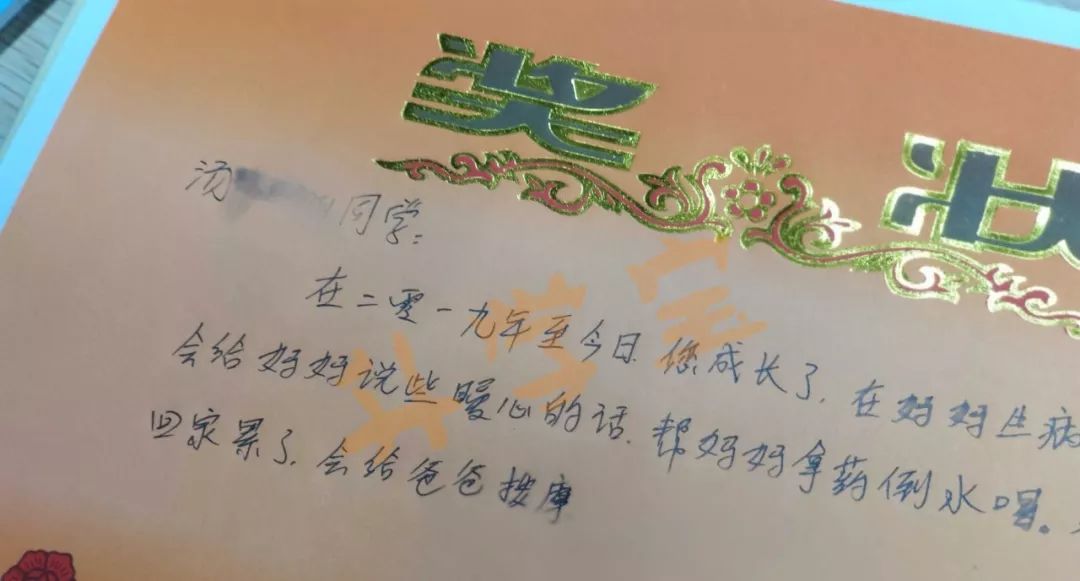 奖状
汤 同学:
在二零一九年至今日 您成长了, 在妈妈生病
会给妈妈说些暖心的话, 帮妈妈拿药倒水喝。
回家累了, 会给爸爸按摩